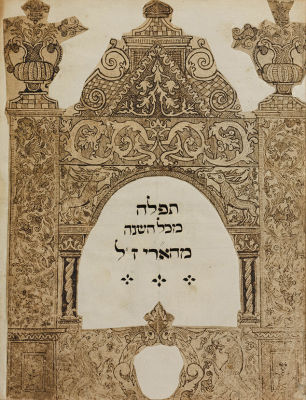 תפלה
מכל השנה
מהארי ז״ל